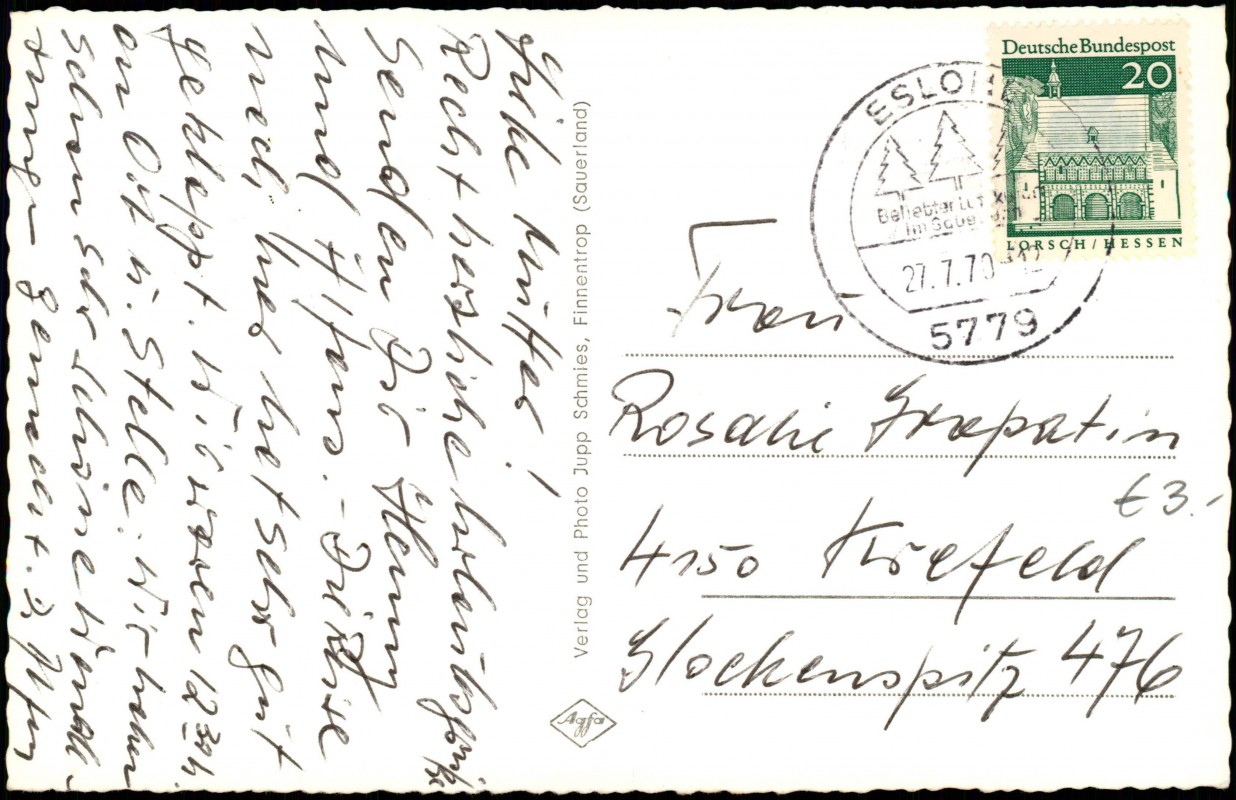 Liebe Mutter!
Recht herzliche Urlaubsgrüße
senden Dir Henny
und Hans. – Die Reise
nach hier hat sehr gut
geklappt. Wir waren 12³⁰ h.
an Ort u. Stelle. Wir haben
schon sehr schöne
gemacht.
Verlag und Photo Jupp Schmies, Finnentrop (Sauerland)
Agfa
Deutsche Bundespost
20
LORSCH/HESSEN
ESLOHE
Beliebter
im Sauerland
27.7.70-12
5779
Frau
Rosalie
€ 3.-
4150 Krefeld
Glockenspitz 476